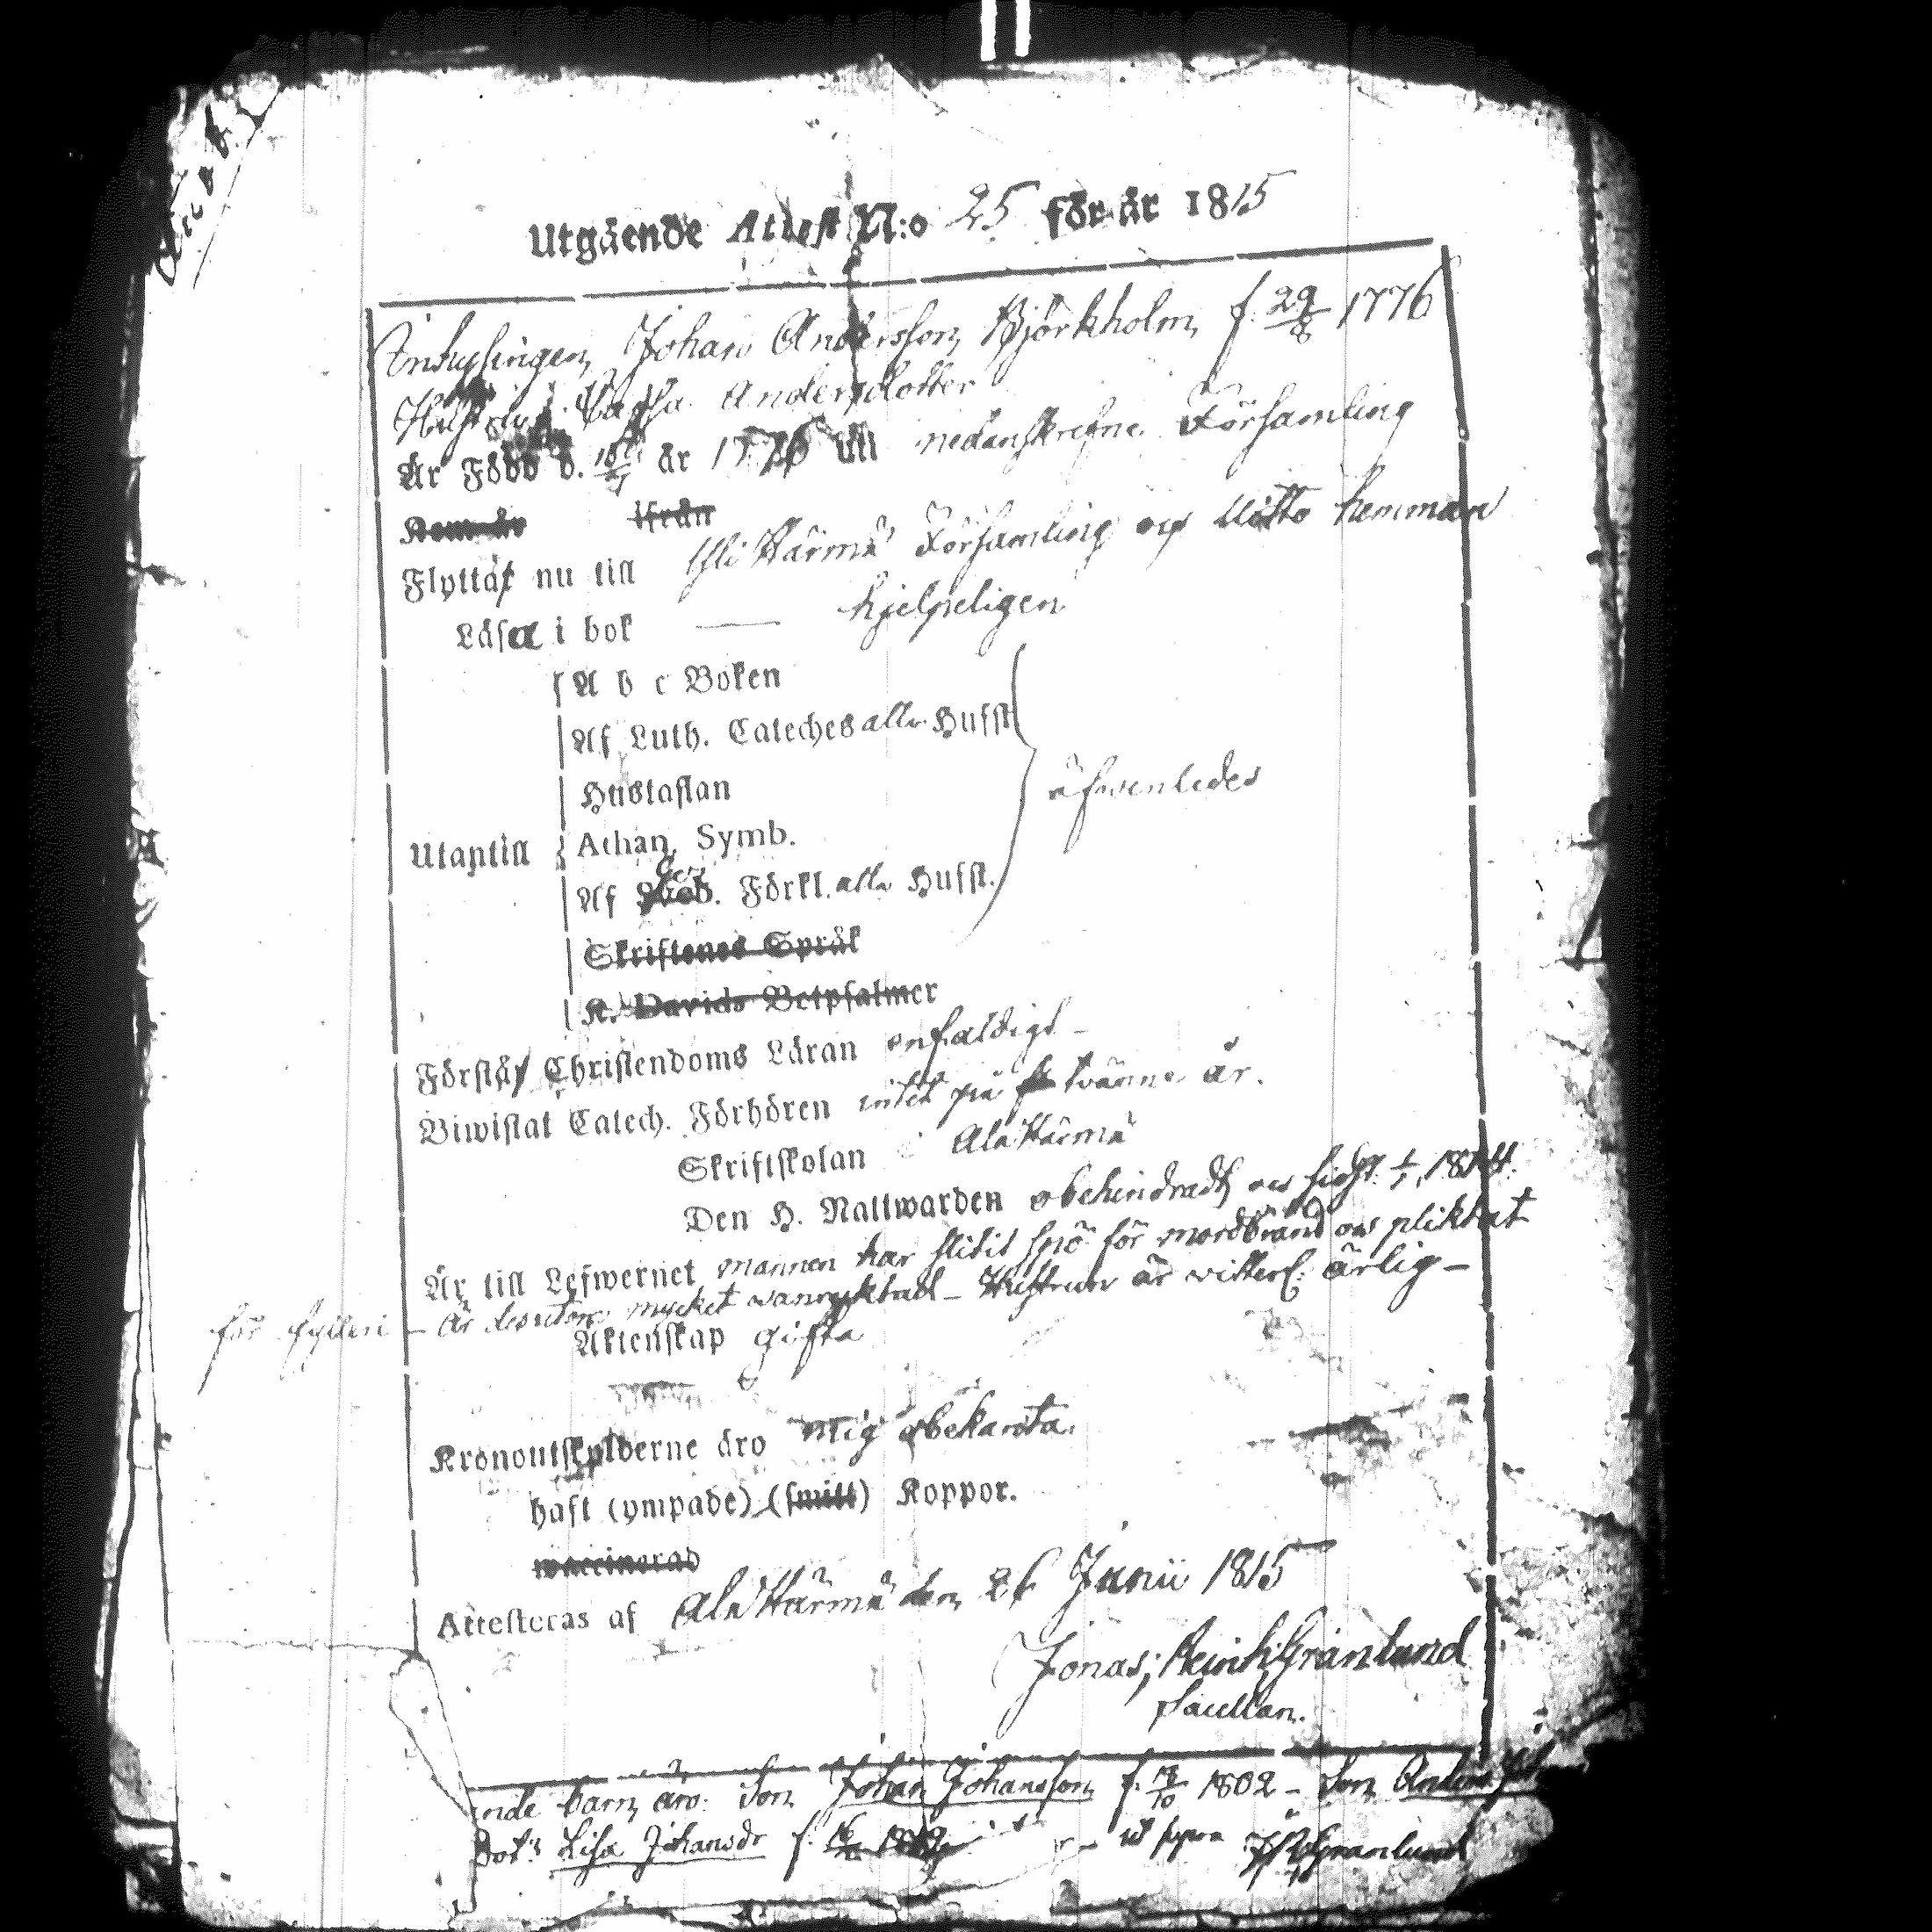 Utgående Attest N:o 25 för år 1815
Inhysingen Johan Andersson Björkholm f. 29/8 1776
Hustrun Andersdotter
Är Född d. år 1776 uti nedanskrefne Församling
Kom år ifrån
Flyttar nu till Yli Härmä Församling hemman
Läsa i bok — hjelpeligen
A b c Boken
Af Luth. Cateches alla Hufst.
Hustaflan
äfwenledes
Utantill Athan. Symb.
Af Förkl. alla Hufst.
Skriftenes Språk
K. Davids Botpsalmer
Förstår Christendoms Läran enfaldigt -
Biwistat Catech. Förhören intet på tvänne år.
Skriftskolan i Ala Härmä
Den H. Nattwarden obehindradt 1/1 1814.
Är till Lefwernet mannen har slitit spö för mordbrand och pliktat
för fylleri - Är desutom mycket wanryktad - Hustrun är witterl: ärlig -
Äktenskap gifta
Kronoutskylderne äro mig obekanta.
haft (ympade) (smitt) Koppor.
waccinerad
Attesteras af Ala Härmä den 26 Junii 1815
Jonas Reinh. Granlund
Sacellan.
ande barn äro: Son Johan Johansson f. 1802 - Son Anders
Dot: Lisa Johansdr f. - ut supra Granlund